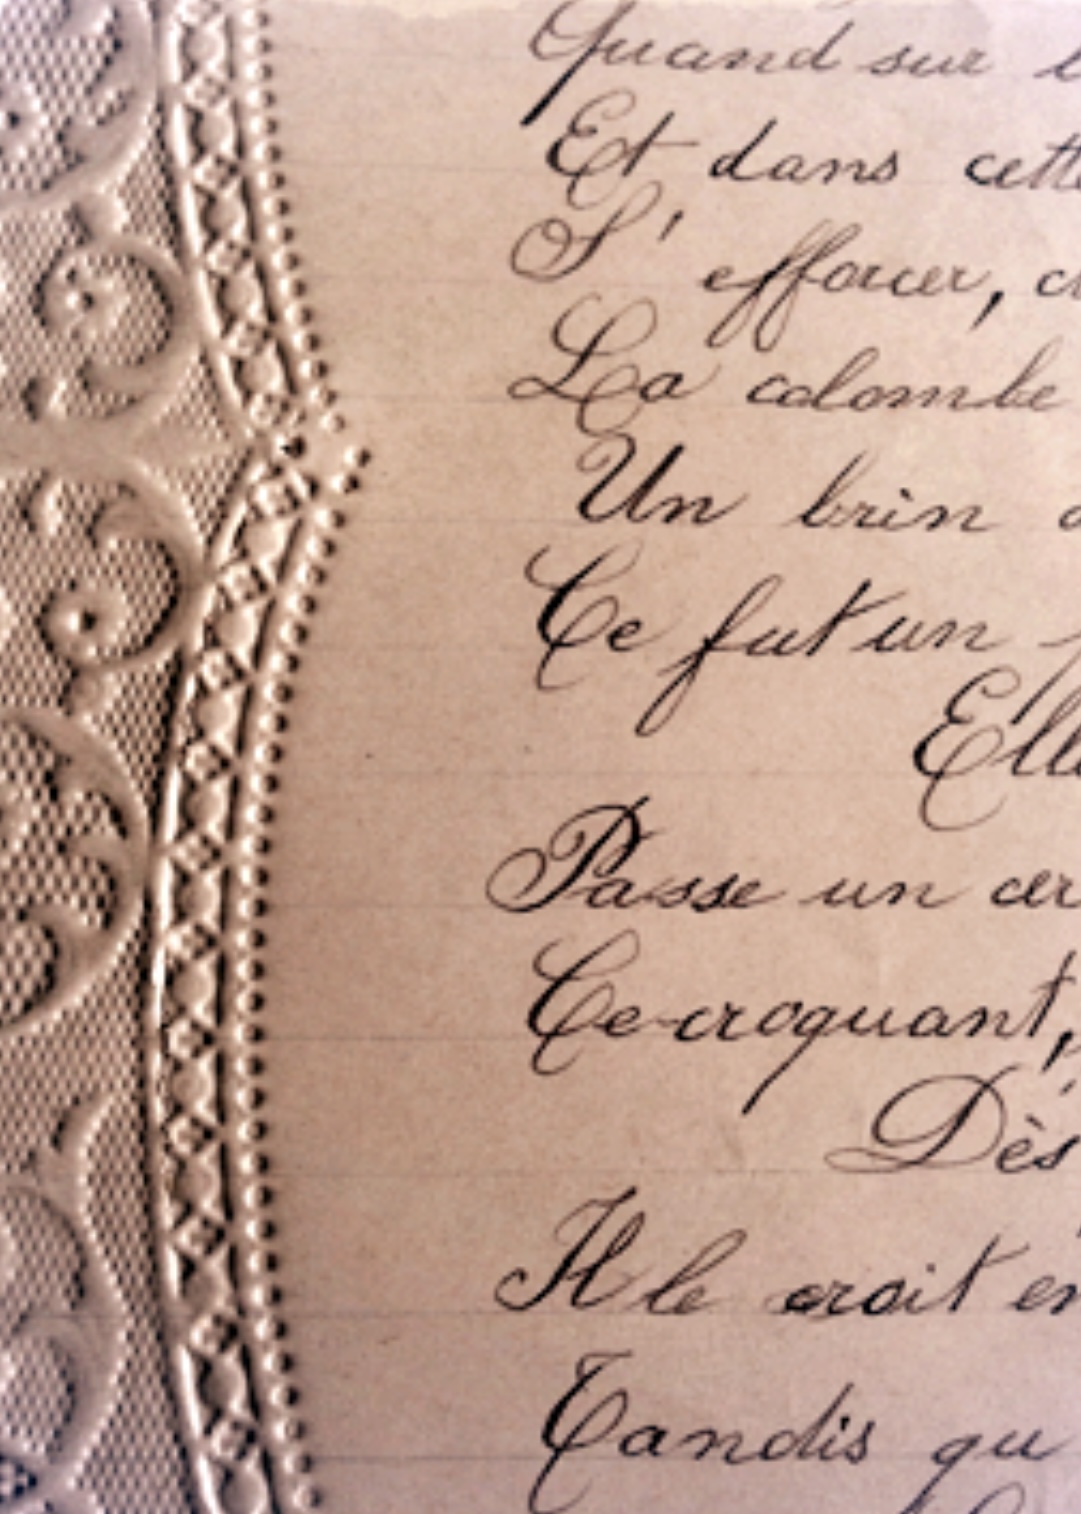 Quand sur l
Et dans cette
S' efforcer, c
La colombe
Un brin d
Ce fut un p
Elle
Passe un cer
Ce croquant,
Dès
Il le croit en
Tandis qu